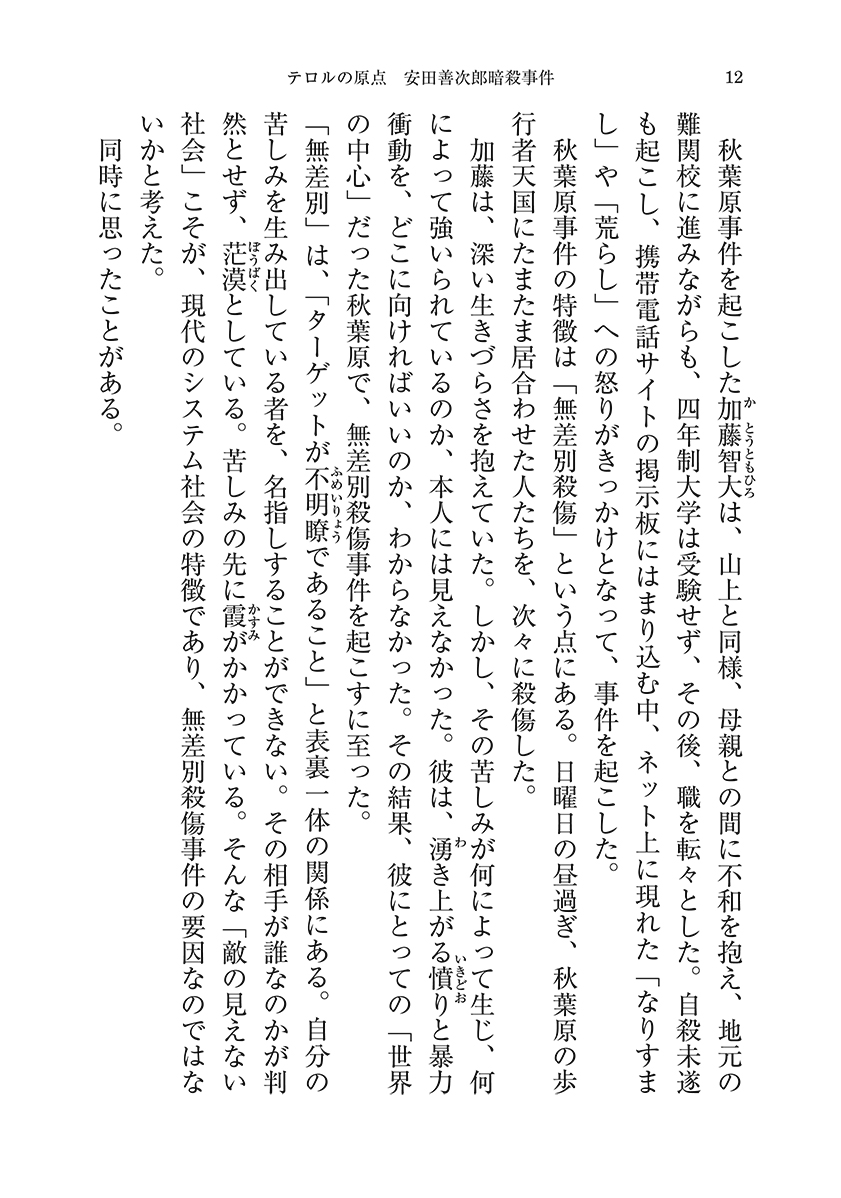 テロルの原点　安田善次郎暗殺事件
12
　秋葉原事件を起こした加藤智大は、山上と同様、母親との間に不和を抱え、地元の
かとうともひろ
難関校に進みながらも、四年制大学は受験せず、その後、職を転々とした。自殺未遂
も起こし、携帯電話サイトの掲示板にはまり込む中、ネット上に現れた「なりすま
し」や「荒らし」への怒りがきっかけとなって、事件を起こした。
　秋葉原事件の特徴は「無差別殺傷」という点にある。日曜日の昼過ぎ、秋葉原の歩
行者天国にたまたま居合わせた人たちを、次々に殺傷した。
　加藤は、深い生きづらさを抱えていた。しかし、その苦しみが何によって生じ、何
によって強いられているのか、本人には見えなかった。彼は、湧き上がる憤りと暴力
わ
いきどお
衝動を、どこに向ければいいのか、わからなかった。その結果、彼にとっての「世界
の中心」だった秋葉原で、無差別殺傷事件を起こすに至った。
　「無差別」は、「ターゲットが不明瞭であること」と表裏一体の関係にある。自分の
ふめいりょう
苦しみを生み出している者を、名指しすることができない。その相手が誰なのかが判
然とせず、茫漠としている。苦しみの先に霞がかかっている。そんな「敵の見えない
ぼうばく
かすみ
社会」こそが、現代のシステム社会の特徴であり、無差別殺傷事件の要因なのではな
いかと考えた。
　同時に思ったことがある。